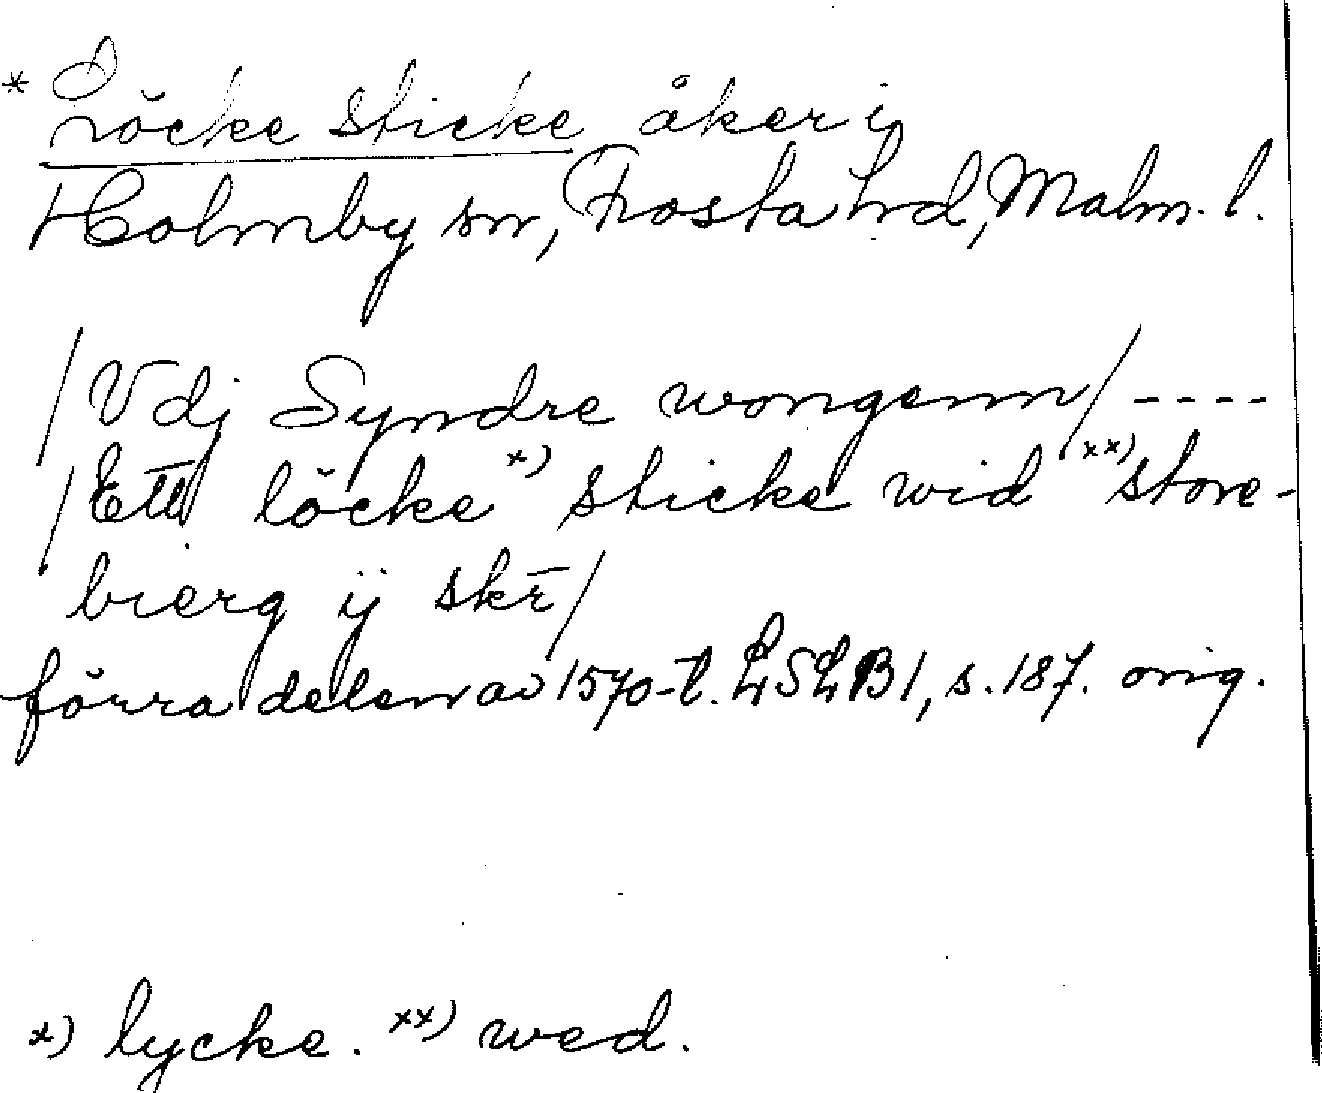 * Löcke sticke åker i
Holmby sn, Frosta hd, Malm. l.
/Vdj Syndre wongenn/ ----
/Ett löcke *) sticke wid xx) store-
bierg ij skr̄/
förra delen av 1570-t. LSLB1, s. 187. orig.
*) lycke. xx) wed.